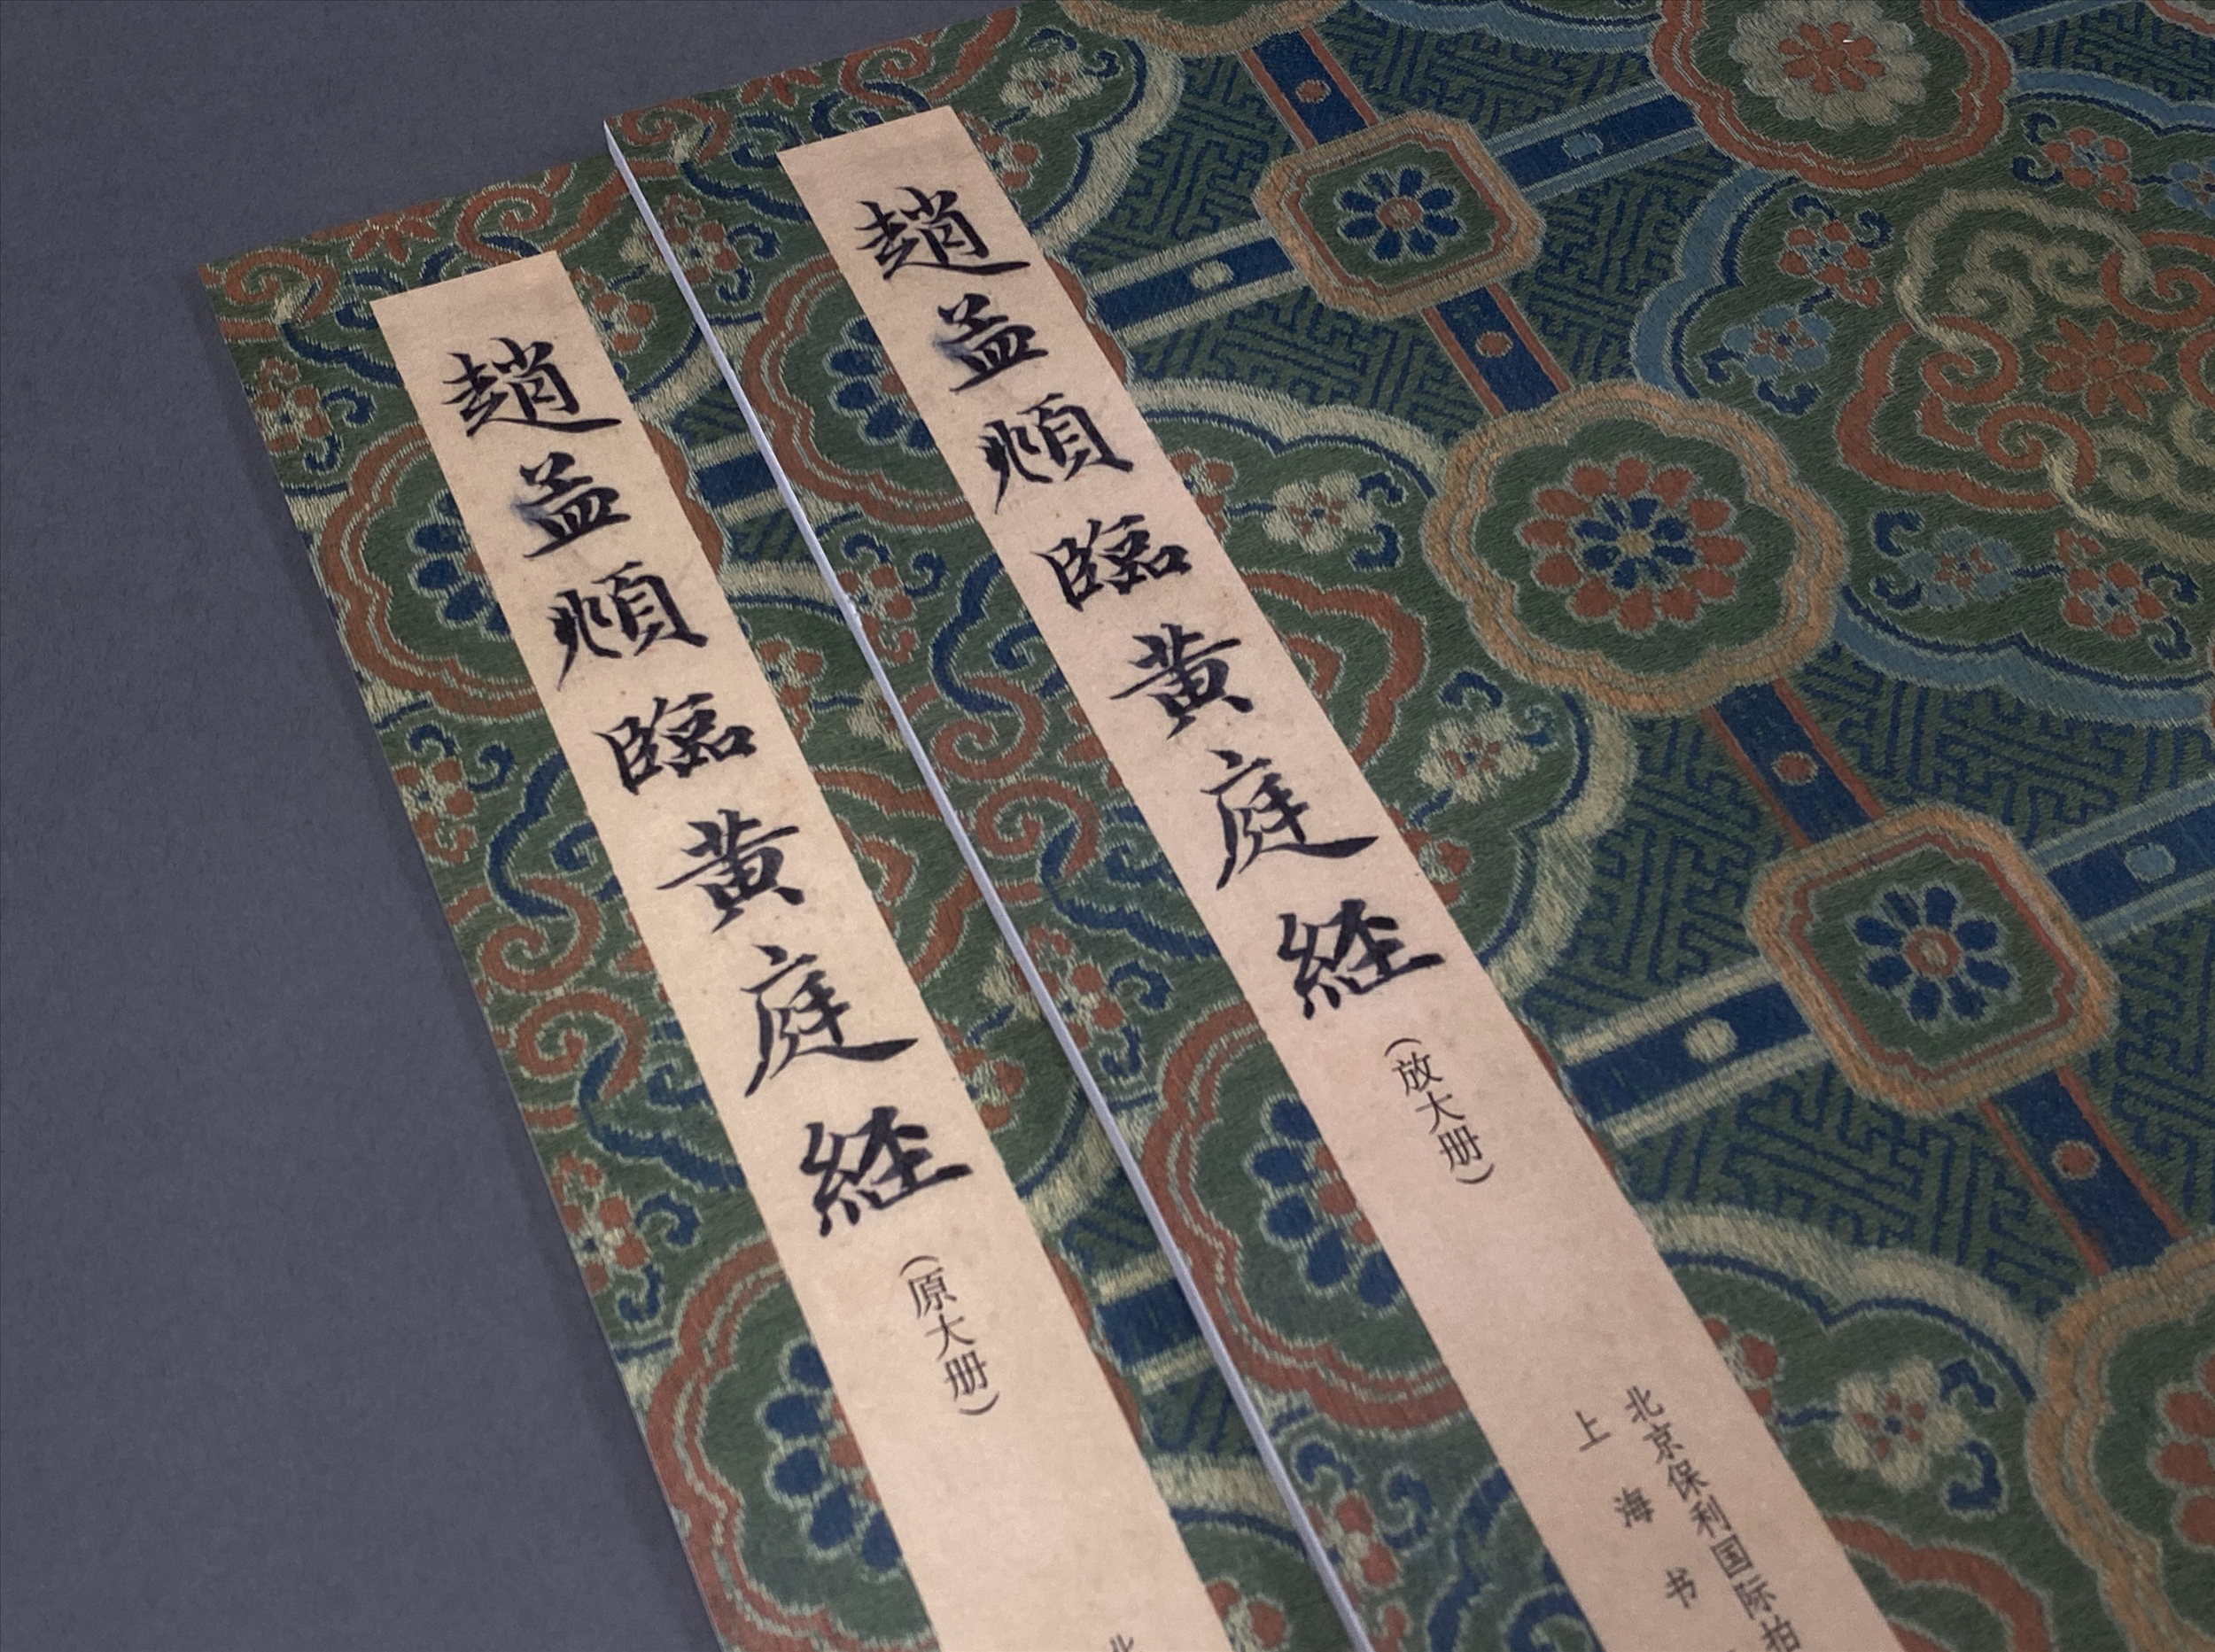 趙孟頫臨黄庭経
(原大册)
趙孟頫臨黄庭経
(放大册)
北京保利国际拍
上海书